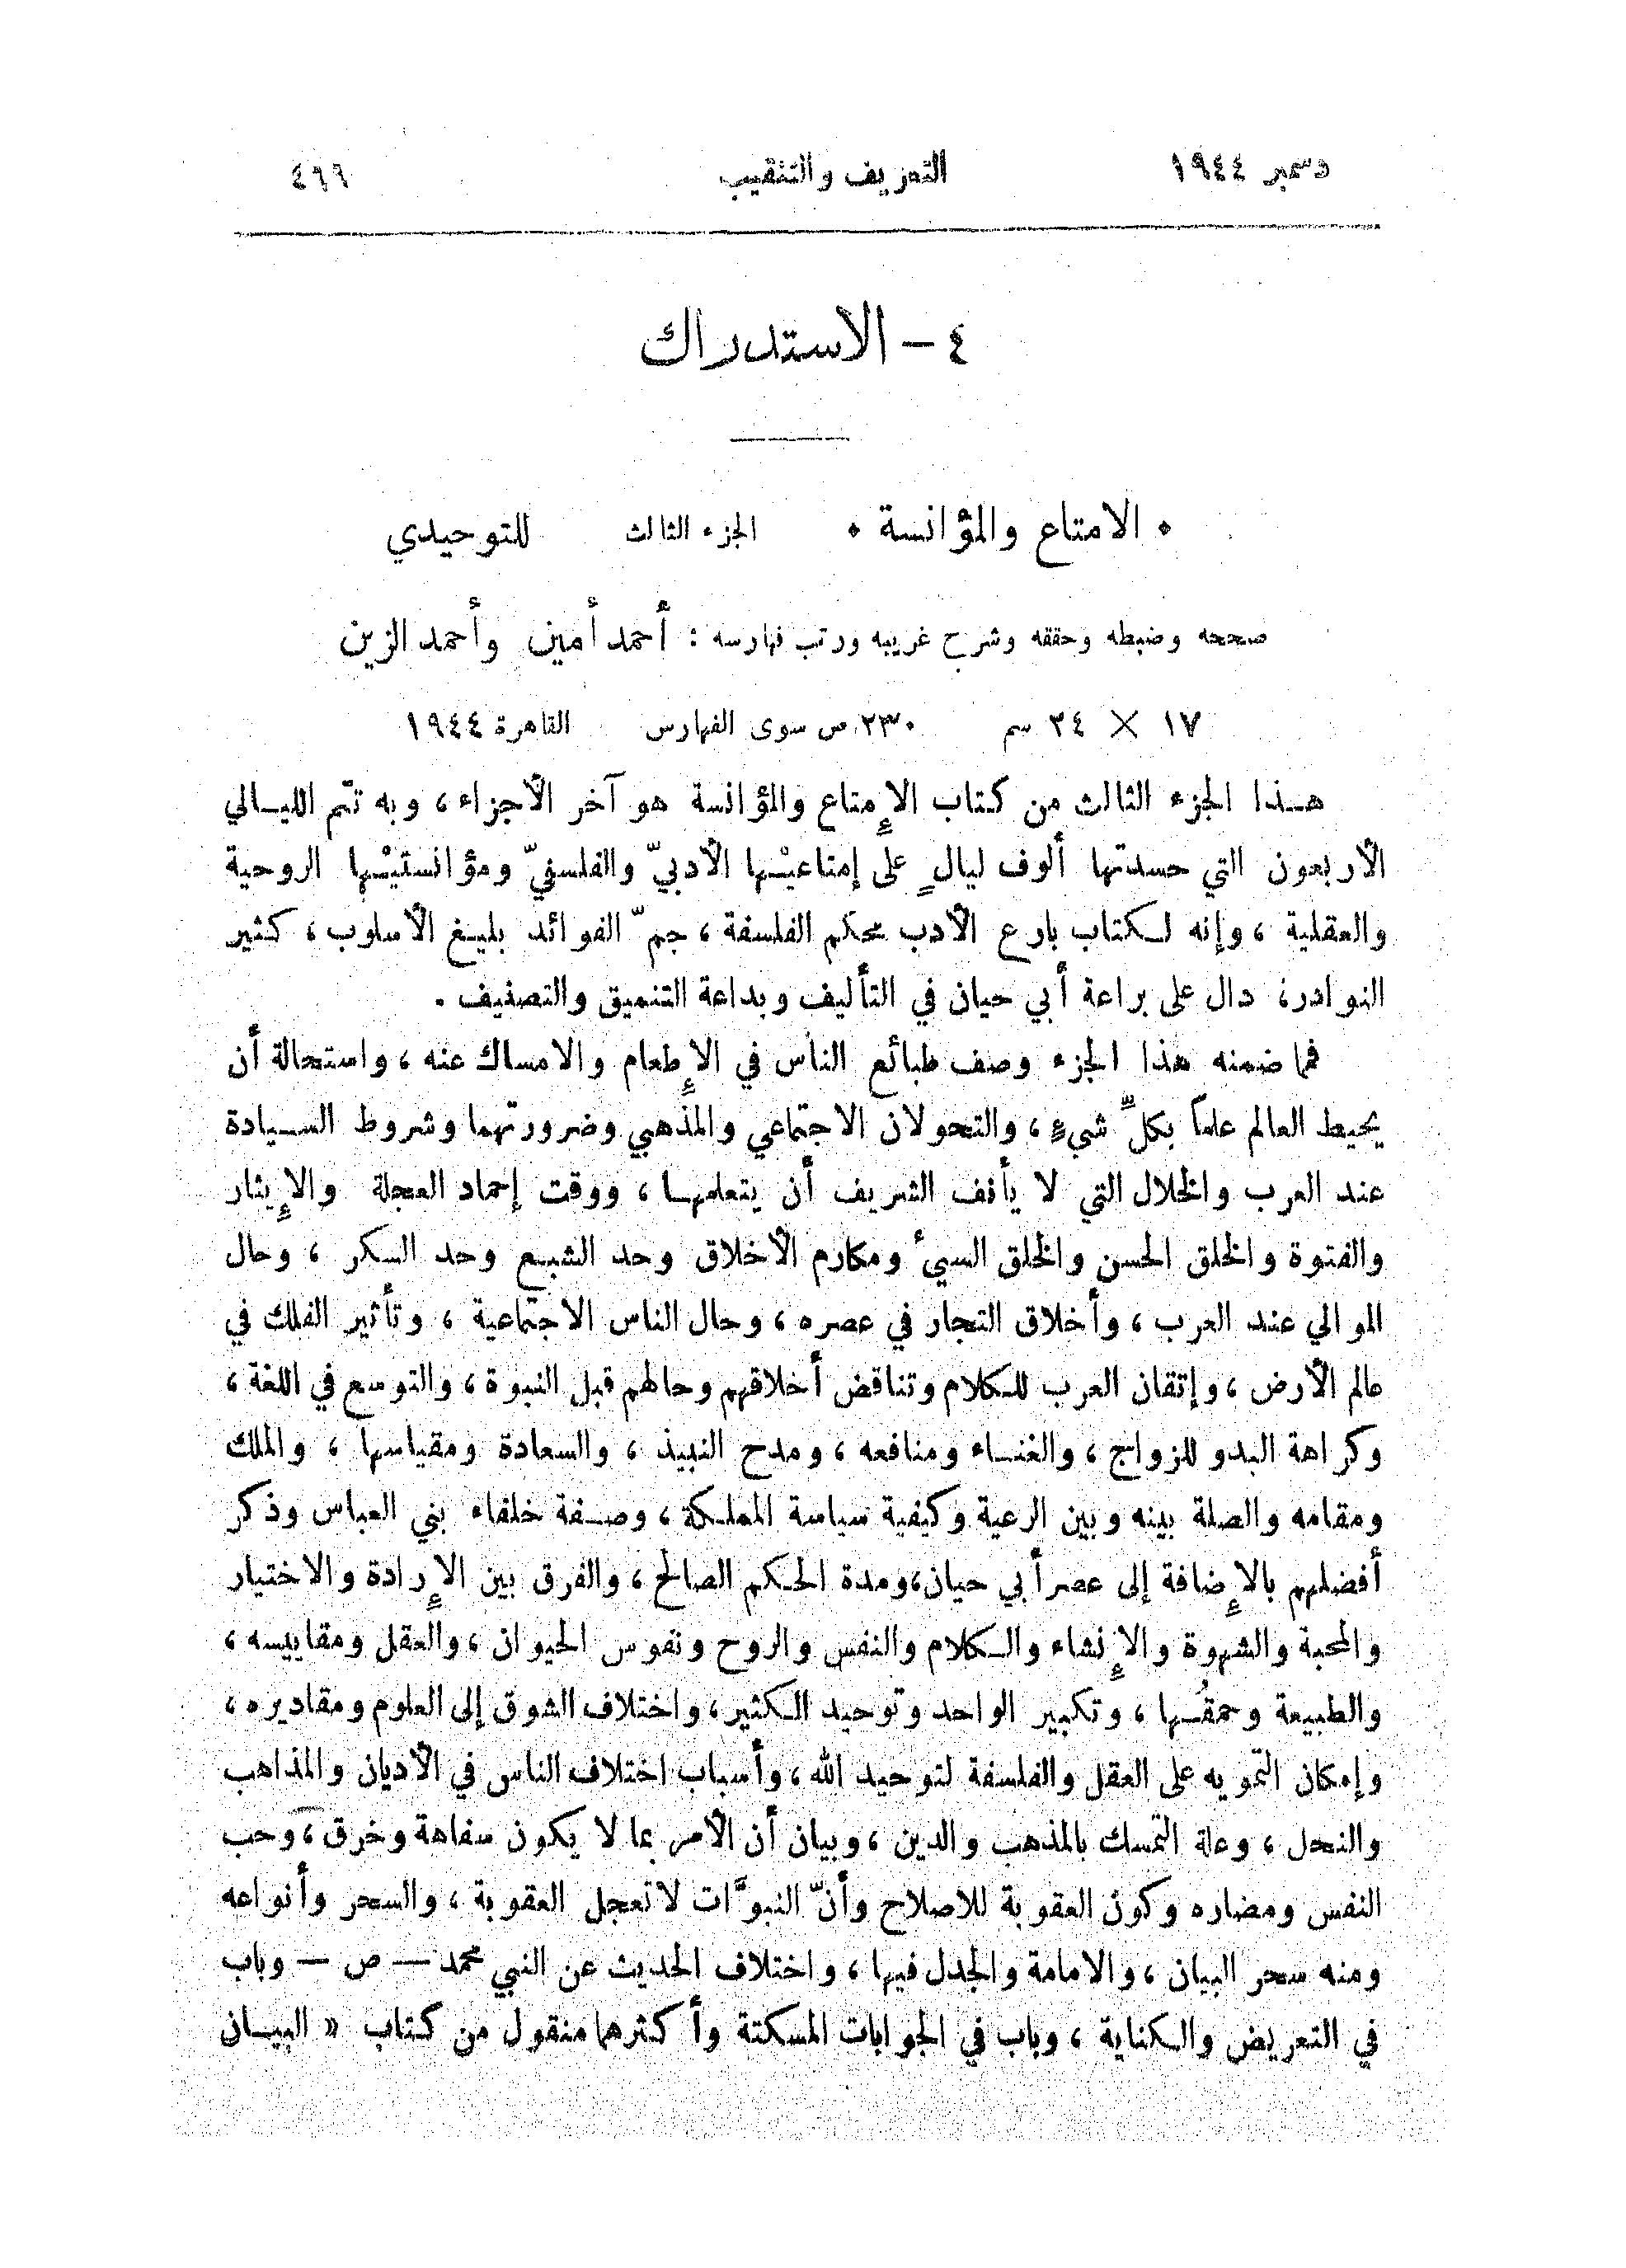 دسمبر ١٩٤٤ التعريف والتنقيب ٤٦٦
٤ – الاستدراك
• الامتاع والمؤانسة • الجزء الثالث للتوحيدي
صححه وضبطه وحققه وشرح غريبه ورتب فهارسه : أحمد أمين وأحمد الزين
١٧ × ٢٤ سم ٢٣٠ ص سوى الفهارس القاهرة ١٩٤٤
هـذا الجزء الثالث من كتاب الإمتاع والمؤانسة هو آخر الأجزاء، وبه تتم الليـالي
الأربعون التي حسدتها ألوف ليالٍ على إمتاعيْـها الأدبيّ والفلسفيّ ومؤانستيْـها الروحية
والعقلية ، وإنه لـكتاب بارع الأدب محكم الفلسفة ، جمّ الفوائد بليـغ الأسلوب ، كثير
النوادر، دال على براعة أبي حيان في التأليف وبداعة التنميق والتصنيف .
فمما ضمنه هذا الجزء وصف طبائع الناس في الإطعام والامساك عنه ، واستحالة أن
يحيط العالم علماً بكلِّ شيءٍ ، والتحولان الاجتماعي والمذهبي وضرورتهما وشروط السـيادة
عند العرب والخلال التي لا يأنف الشريف أن يتعلمهـا ، ووقت إحماد العجلة والإيثار
والفتوة والخلق الحسن والخلق السيئ ومكارم الأخلاق وحد الشبـع وحد السكر ، وحال
الموالي عند العرب ، وأخلاق التجار في عصره ، وحال الناس الاجتماعية ، وتأثير الفلك في
عالم الأرض ، وإتقان العرب للـكلام وتناقض أخلاقهم وحالهم قبل النبوة ، والتوسع في اللغة ،
وكراهة البدو للزواج ، والغنـاء ومنافعه ، ومدح النبيذ ، والسعادة ومقياسها ، والملك
ومقامه والصلة بينه وبين الرعية وكيفية سياسة المملـكة ، وصـفة خلفاء بني العباس وذكر
أفضلهم بالإضافة إلى عصر أبي حيان، ومدة الحـكم الصالح ، والفرق بين الإرادة والاختيار
والمحبة والشهوة والإنشاء والـكلام والنفس والروح ونفوس الحيوان ، والعقل ومقاييسه ،
والطبيعة وحمقُـها ، وتكبير الواحد وتوحيد الـكثير، واختلاف الشوق إلى العلوم ومقاديره ،
وإمكان التمويه على العقل والفلسفة لتوحيد الله ، وأسباب اختلاف الناس في الأديان والمذاهب
والنحل ، وعلة التمسك بالمذهب والدين ، وبيان أن الأمر بما لا يكون سفاهة وخرق ، وحب
النفس ومضاره وكون العقوبة للاصلاح وأنّ النبوَّات لا تعجل العقوبة ، والسحر وأنواعه
ومنه سحر البيان ، والامامة والجدل فيها ، واختلاف الحديث عن النبي محمد — ص — وباب
في التعريض والـكناية ، وباب في الجوابات المسكتة وأكثرهما منقول من كتاب « البيـان